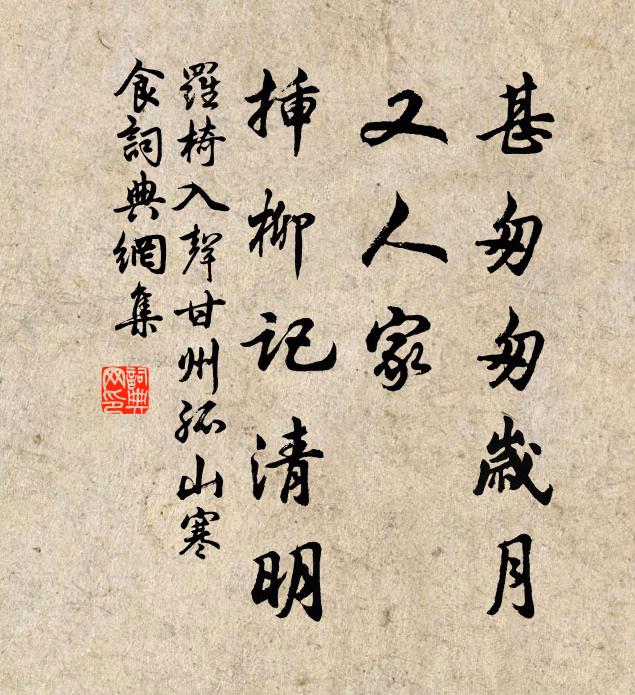 甚匆匆歲月
又人家
插柳記清明
羅椅入聲甘州孤山寒
食詞典網集
詞典
网印